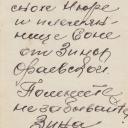 ской Нюре
и племян-
нице Соне
от Зины
Ораевской.
Помните
не забывайте
Зина